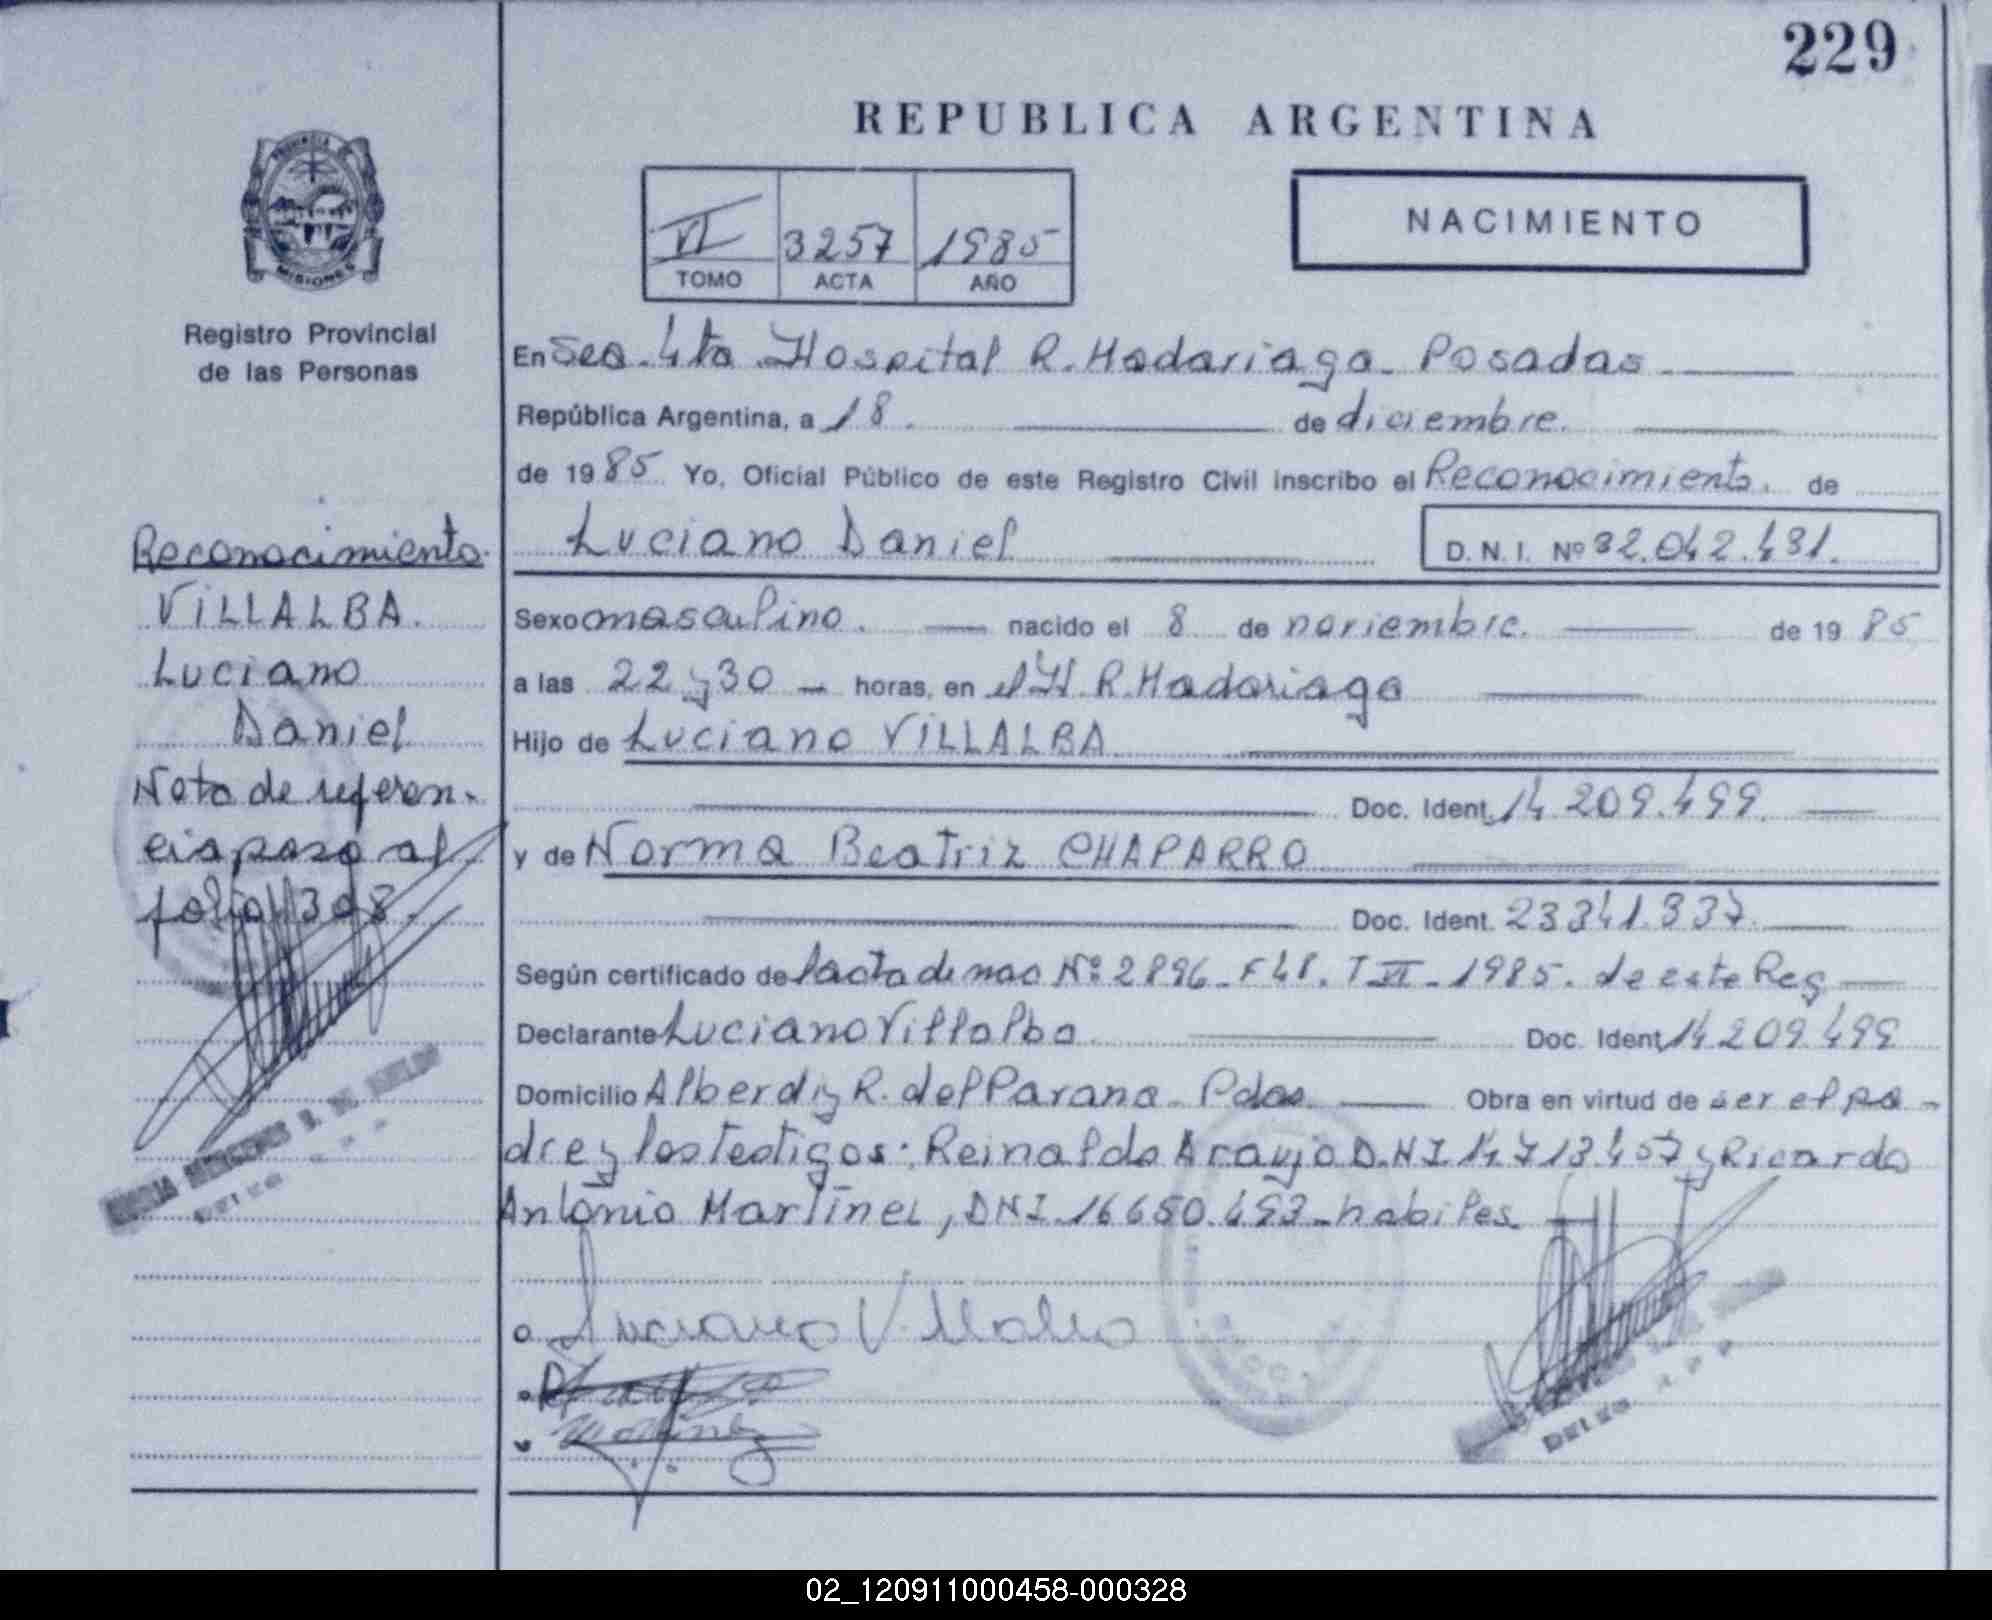 229
REPUBLICA ARGENTINA
PROVINCIA DE
MISIONES
Registro Provincial
de las Personas
VI 3257 1985
TOMO ACTA AÑO
NACIMIENTO
En Sec. 4ta Hospital R. Madariaga - Posadas
República Argentina, a 18. de diciembre.
de 1985 Yo, Oficial Público de este Registro Civil inscribo el Reconocimiento. de
Luciano Daniel D. N. I. Nº 32.042.431.
Sexo masculino. nacido el 8 de noviembre. de 1985
a las 22 y 30 - horas, en el H. R. Madariaga
Hijo de Luciano VILLALBA
Doc. Ident. 14 209.499.
y de Norma Beatriz CHAPARRO
Doc. Ident. 23341.337.
Según certificado de l'acta de nac Nº 2896 - F 48. T VI - 1985. de este Reg
Declarante Luciano Villalba Doc. Ident. 14 209.499
Domicilio Alberdi y R. del Parana - Pdas. Obra en virtud de ser el pa-
dre y los testigos: Reinaldo Araujo D.N.I 14 713.457 y Ricardo
Antonio Martínez, DNI. 16650.493 - habiles
Luciano Villalba
Reconocimiento.
VILLALBA.
Luciano
Daniel
Nota de referen-
cia paso al
folio 308.
02_120911000458-000328